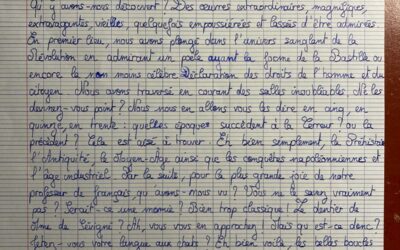 Qu'y avons-nous découvert ? Des œuvres extraordinaires, magnifiques,
extravagantes, vieilles, quelquefois empoussiérées et lassées d'être admirées.
En premier lieu, nous avons plongé dans l'univers sanglant de la
Révolution en admirant un poêle ayant la forme de la Bastille ou
encore la non moins célèbre Déclaration des droits de l'homme et du
citoyen. Nous avons traversé en courant des salles inoubliables. Ne les
devinez-vous point ? Nous nous en allons vous les dire en cinq, en
quinze, en trente : quelles époques succèdent à la Terreur ? ou la
précèdent ? Cela est aisé à trouver. Eh bien simplement, la Préhistoire
l'Antiquité, le Moyen-Age ainsi que les conquêtes napoléonniennes et
l'âge industriel. Par la suite, pour la plus grande joie de notre
professeur de français, qu'avons-nous vu ? Vous ne le savez vraiment
pas ? Serait-ce une momie ? Bien trop classique ! Le dentier de
Mme de Sévigné ? Ah, vous vous en approchez ! Mais qui est-ce donc ?
Jetez-vous votre langue aux chats ? Eh bien voilà, les belles boucles